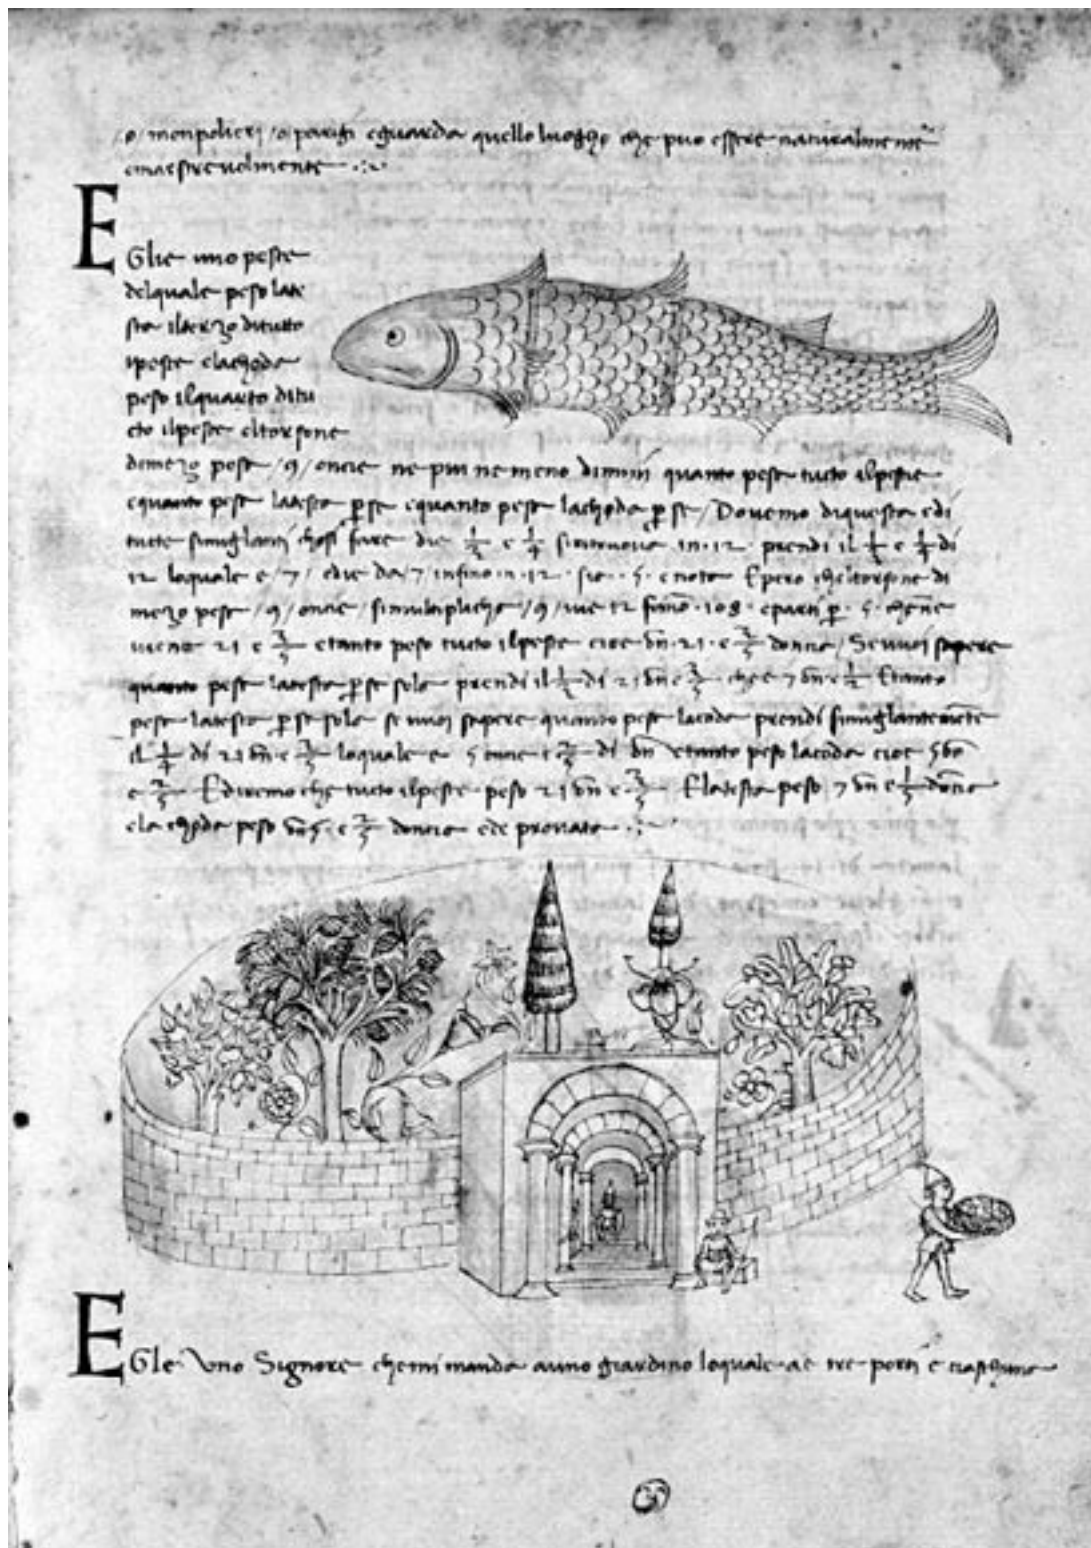 o monpolieri o parigi eguarda quello luogho che puo essere naturalmente
emaestrevolmente
E
Glie uno pesce
delquale peso late
sta ilterzo ditutto
ipesce elachoda
peso ilquarto ditu
cto ilpesce eltorsone
dimezo pesa /9/ oncie ne piu ne meno dimmi quanto pesa tucto ilpesce
equanto pesa latesta p se equanto pesa lachoda p se / Dovemo diquesta edi
tucte simiglanti chosi fare die 1/3 e 1/4 sitrruova in·12· prendi il 1/3 e 1/4 di
12 loquale e /7/ edie da /7/ infino in·12· sie ·5· enota Epero cheltorsone di
mezo pesa /9/ oncie / simultiplicha /9/ vie 12 fanno ·108· eparti p ·5· chene
viene 21 e 3/5 etanto peso tucto ilpesce cioe on·21· e 3/5 doncia / Sevuoi sapere
quanto pesa latesta p se sola prendi il 1/3 di 21 on e 3/5 che e 7 on e 1/5 Etanto
pesa latesta p se sola se vuoi sapere quanto pesa lacoda prendi simiglantemente
il 1/4 di 21 on e 3/5 loquale e 5 oncie e 2/5 di on etanto peso lacoda cioe 5 on
e 2/5 Ediremo che tucto ilpesce peso 21 on e 3/5 Elatesta peso 7 on e 1/5 doncia
ela choda peso on 5 e 2/5 doncia ede provata
E
Gle Uno Signore chemi manda auno giardino loquale ae tre porti e ciaschuna